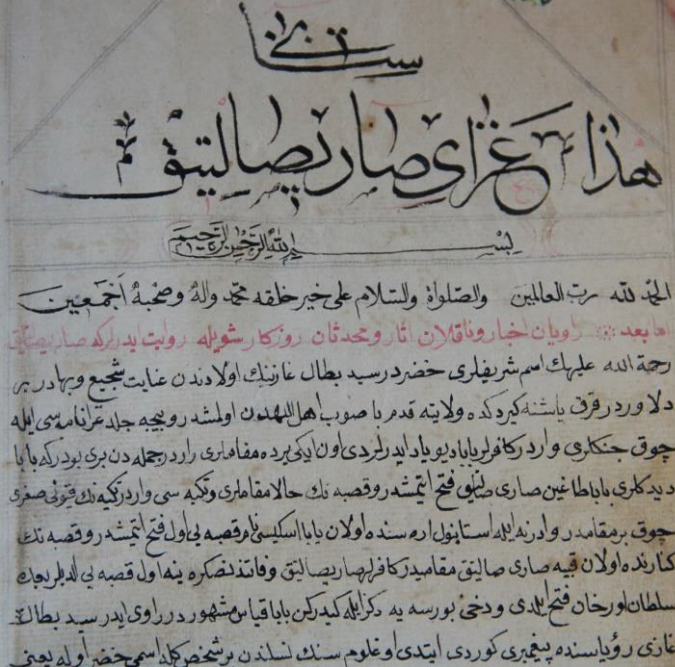 هذا غزای صاریصالیتق
بسم الله الرحمن الرحیم
الحمد لله رب العالمین والصلواة والسلام علی خیر خلقه محمد واله وصحبه اجمعین
اما بعد راویان اخبار وناقلان اثار ومحدثان روزکار شویله روایت ایدرلرکه صاریصالیق
رحمة الله علیهك اسم شریفلری خضردر سید بطال غازینك اولادندن غایت شجیع وبهادر بر
دلاوردر قرق یاشنه کیردکده ولایته قدم باصوب اهل الله دن اولمشدر ونیجه جلد غزانامه سی ایله
چوق جنکلری واردر کافرلر بابا دیو یاد ایدرلردی اون ایکی یرده مقاملری واردر جمله دن بری بودرکه بابا
دیدکلری بابا طاغین صاری صالتیق فتح ایتمشدر وقصبه نك حالا مقاملری وتکیه سی واردر تکیه نك قونی صغری
چوقبر مقامدر وادرنه ایله استانبول اره سنده اولان بابا اسکیسی نام قصبه یی اول فتح ایتمشدر وقصبه نك
کنارنده اولان قبه صاری صالیتق مقامیدر کافرلر صاریصالیتق وفاتندنصکره ینه اول قصبه یی الدیلر بعده
سلطان اورخان فتح ایلدی ودخی بورسه یه دکز ایله کیدرکن بابا قیاس مشهوردر راوی ایدر سید بطال
غازی رؤیاسنده پیغمبری کوردی ایتدی اوغلوم سنك نسلندن بر شخص کله اسمی خضر اوله یعنی